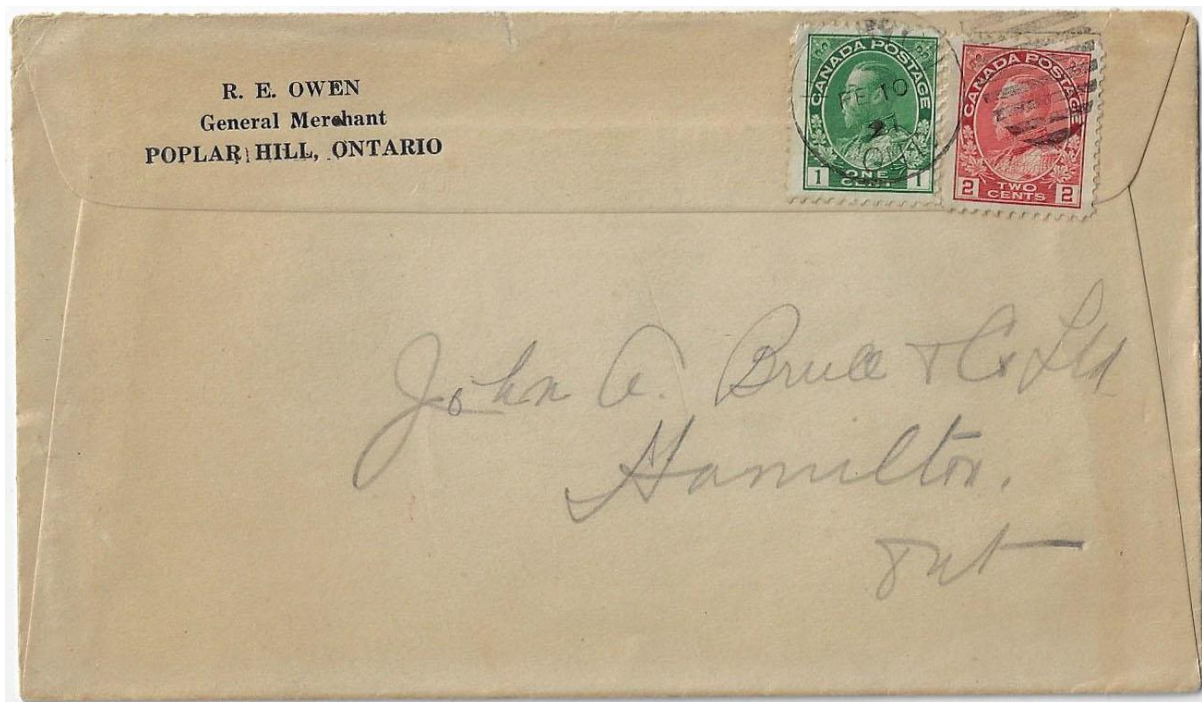 R. E. OWEN
General Merchant
POPLAR HILL, ONTARIO
CANADA POSTAGE
1 ONE CENT 1
CANADA POSTAGE
2 TWO CENTS 2
FE 10
ONT
John A. Bruce & Co Ltd
Hamilton.
Ont